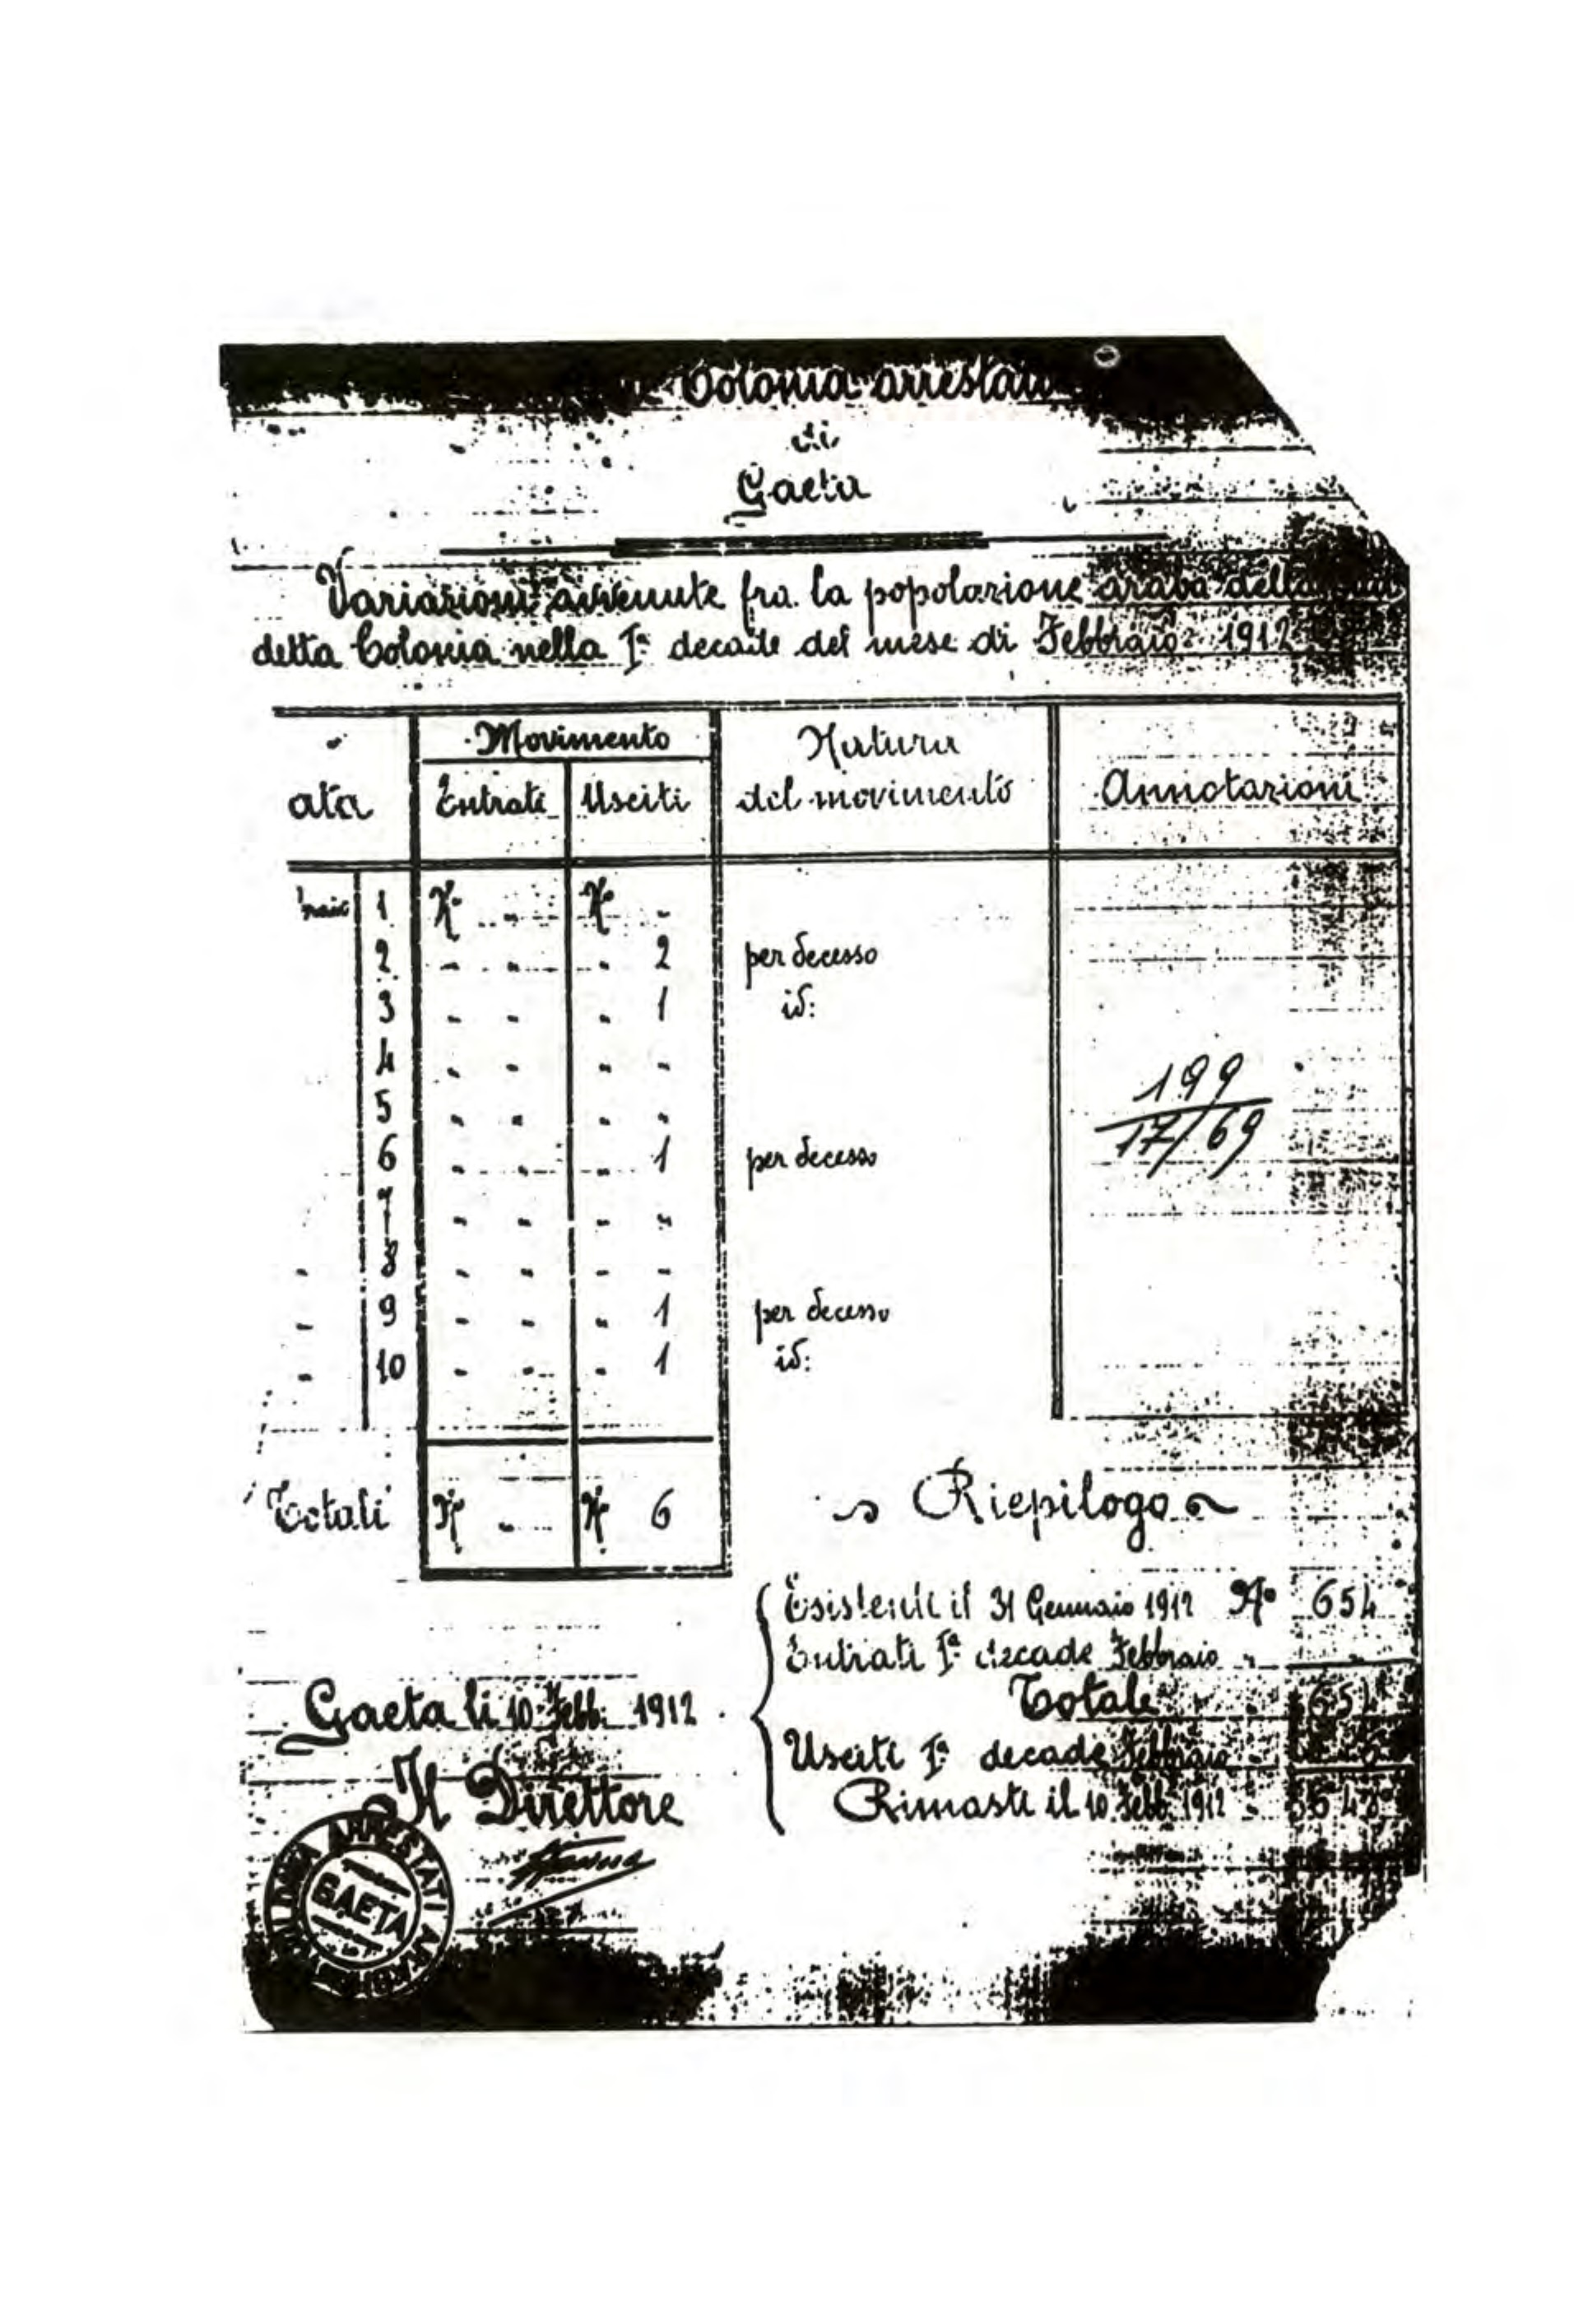 Colonia arrestati
di
Gaeta
Variazioni avvenute fra la popolazione araba della
detta Colonia nella Iª decade del mese di Febbraio 1912
ata Movimento Natura del movimento Annotazioni
Entrati Usciti
1 N° - N° -
2 - - - 2 per decesso
3 - - - 1 id:
4 - - - -
5 - - - -
6 - - - 1 per decesso
7 - - - -
8 - - - -
9 - - - 1 per decesso
10 - - - 1 id:
199
17/69
Totali N° - N° 6
Riepilogo
Esistenti il 31 Gennaio 1912 N° 654
Entrati Iª decade Febbraio - -
Totale 654
Usciti Iª decade Febbraio -
Rimasti il 10 Febb. 1912 - 648
Gaeta li 10 Febb. 1912
Il Direttore
ARRESTATI
GAETA